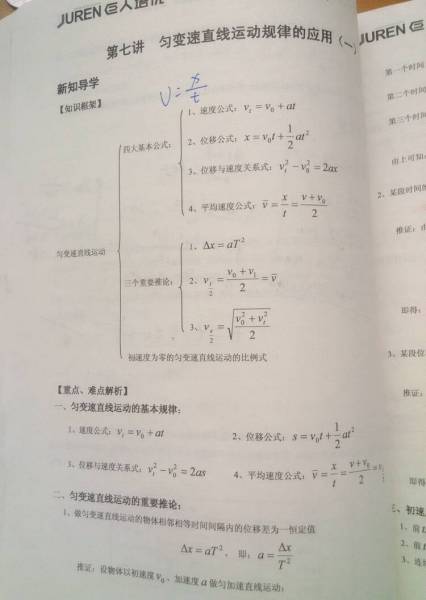 JUREN 巨人培优
第七讲 匀变速直线运动规律的应用（一）
JUREN
新知导学
【知识框架】
v=x/t
匀变速直线运动
四大基本公式：
1、速度公式：v_t = v_0 + at
2、位移公式：x = v_0t + 1/2 at²
3、位移与速度关系式：v_t² - v_0² = 2ax
4、平均速度公式：v̄ = x/t = (v+v_0)/2
三个重要推论：
1、Δx = aT²
2、v_{t/2} = (v_0+v_t)/2 = v̄
3、v_{x/2} = √((v_0²+v_t²)/2)
初速度为零的匀变速直线运动的比例式
【重点、难点解析】
一、匀变速直线运动的基本规律：
1、速度公式：v_t = v_0 + at
2、位移公式：s = v_0t + 1/2 at²
3、位移与速度关系式：v_t² - v_0² = 2as
4、平均速度公式：v̄ = x/t = (v+v_0)/2
二、匀变速直线运动的重要推论：
1、做匀变速直线运动的物体相邻相等时间间隔内的位移差为一恒定值
Δx = aT²，即：a = Δx/T²
推证：设物体以初速度v_0、加速度a做匀加速直线运动：
第一个时间
第二个时间
第三个时间
由上可知
2、某段时间
推证：
即得：
3、某段位
推证：
即得
三、初速
1、前
2、第
3、连